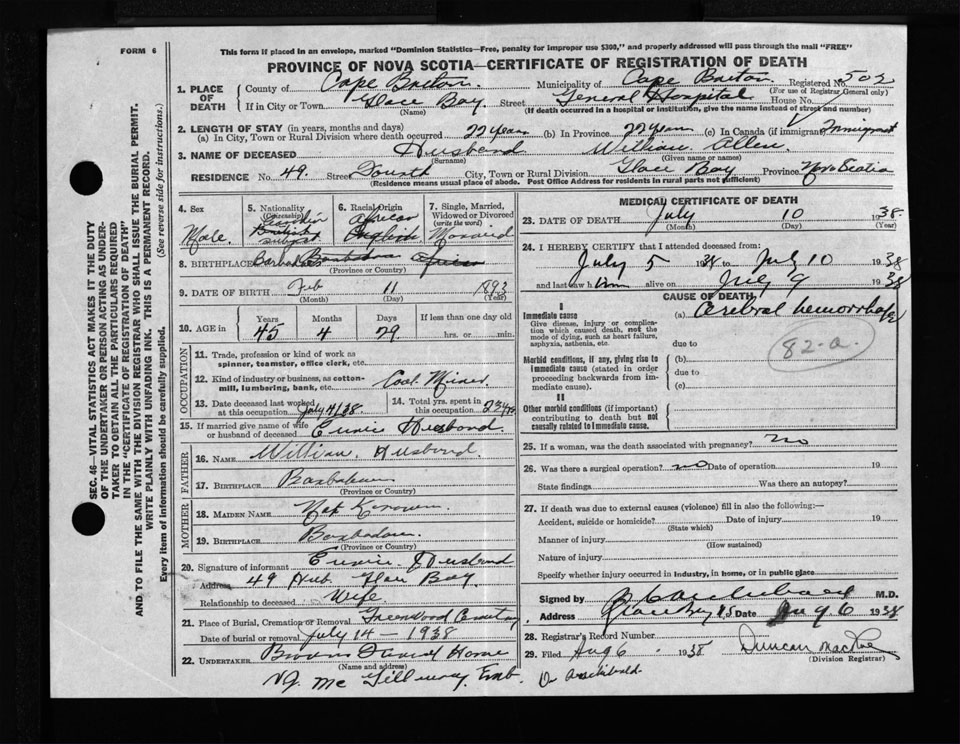 FORM 6
This form if placed in an envelope, marked "Dominion Statistics—Free, penalty for improper use $300," and properly addressed will pass through the mail "FREE"
PROVINCE OF NOVA SCOTIA—CERTIFICATE OF REGISTRATION OF DEATH
SEC. 46—VITAL STATISTICS ACT MAKES IT THE DUTY
OF THE UNDERTAKER OR PERSON ACTING AS UNDER-
TAKER TO OBTAIN ALL THE PARTICULARS REQUIRED
IN THE "CERTIFICATE OF REGISTRATION OF DEATH"
AND TO FILE THE SAME WITH THE DIVISION REGISTRAR WHO SHALL ISSUE THE BURIAL PERMIT.
WRITE PLAINLY WITH UNFADING INK. THIS IS A PERMANENT RECORD.
Every item of information should be carefully supplied. (See reverse side for instructions.)
1. PLACE OF DEATH County of Cape Breton Municipality of Cape Breton Registered No. 502
(For use of Registrar General only)
If in City or Town Glace Bay Street General Hospital House No.
(Name) (If death occurred in a hospital or institution, give the name instead of street and number)
2. LENGTH OF STAY (in years, months and days)
(a) In City, Town or Rural Division where death occurred 22 years (b) In Province 22 years (c) In Canada (if immigrant) Immigrant
3. NAME OF DECEASED Husband William Allen
(Surname) (Given name or names)
RESIDENCE No. 49 Street Fourth City, Town or Rural Division Glace Bay Province Nova Scotia
(Residence means usual place of abode. Post Office Address for residents in rural parts not sufficient)
4. Sex Male
5. Nationality (Citizenship) British subject
6. Racial Origin African English
7. Single, Married, Widowed or Divorced (write the word) Married
8. BIRTHPLACE Barbados
(Province or Country)
9. DATE OF BIRTH Feb 11 1893
(Month) (Day) (Year)
10. AGE in Years Months Days If less than one day old
45 4 29 hrs. or min.
OCCUPATION
11. Trade, profession or kind of work as spinner, teamster, office clerk, etc.
12. Kind of industry or business, as cotton-mill, lumbering, bank, etc. Coal Miner
13. Date deceased last worked at this occupation July 4/38 14. Total yrs. spent in this occupation
15. If married give name of wife or husband of deceased Husband
FATHER
16. NAME William Husband
17. BIRTHPLACE
(Province or Country)
MOTHER
18. MAIDEN NAME Not Known
19. BIRTHPLACE
(Province or Country)
20. Signature of informant Husband
Address 49 Bay
Relationship to deceased Wife
21. Place of Burial, Cremation or Removal Greenwood Cemetery
Date of burial or removal July 14 — 1938
22. UNDERTAKER Home
(Name and address)
MEDICAL CERTIFICATE OF DEATH
23. DATE OF DEATH July 10 1938
(Month) (Day) (Year)
24. I HEREBY CERTIFY that I attended deceased from:
July 5 1938 to July 10 1938
and last saw him alive on July 9 1938
CAUSE OF DEATH
I
Immediate cause (a) Cerebral hemorrhage
Give disease, injury or complication which caused death, not the mode of dying, such as heart failure, asphyxia, asthenia, etc.
82-a.
due to
Morbid conditions, if any, giving rise to immediate cause (stated in order proceeding backwards from immediate cause). (b)
due to
(c)
II
Other morbid conditions (if important) contributing to death but not causally related to immediate cause.
25. If a woman, was the death associated with pregnancy? no
26. Was there a surgical operation? no Date of operation 19
State findings Was there an autopsy?
27. If death was due to external causes (violence) fill in also the following:—
Accident, suicide or homicide? Date of injury 19
(State which)
Manner of injury
(How sustained)
Nature of injury
Specify whether injury occurred in industry, in home, or in public place
Signed by Archibald M.D.
Address Glace Bay NS Date Aug 6 1938
28. Registrar's Record Number
29. Filed Aug 6 1938 Duncan MacRae
(Division Registrar)
Dr Archibald.